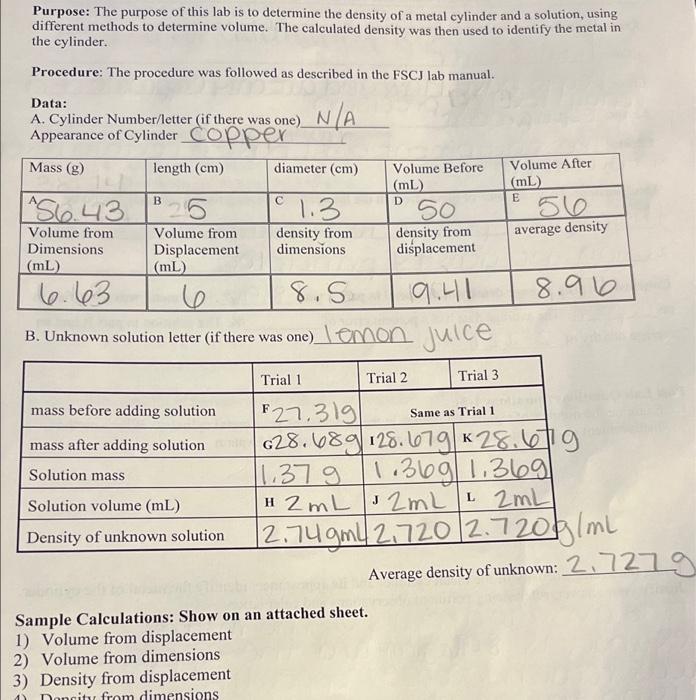 Purpose: The purpose of this lab is to determine the density of a metal cylinder and a solution, using
different methods to determine volume. The calculated density was then used to identify the metal in
the cylinder.
Procedure: The procedure was followed as described in the FSCJ lab manual.
Data:
A. Cylinder Number/letter (if there was one) N/A
Appearance of Cylinder copper
Mass (g) length (cm) diameter (cm) Volume Before (mL) Volume After (mL)
A 56.43 B 5 C 1.3 D 50 E 56
Volume from Dimensions (mL) Volume from Displacement (mL) density from dimensions density from displacement average density
6.63 6 8.5 9.41 8.96
B. Unknown solution letter (if there was one) lemon juice
Trial 1 Trial 2 Trial 3
mass before adding solution F 27.31g Same as Trial 1
mass after adding solution G 28.68g I 28.67g K 28.67g
Solution mass 1.37g 1.36g 1.36g
Solution volume (mL) H 2mL J 2mL L 2mL
Density of unknown solution 2.74gmL 2.720 2.720g/mL
Average density of unknown: 2.727g
Sample Calculations: Show on an attached sheet.
1) Volume from displacement
2) Volume from dimensions
3) Density from displacement
4) Density from dimensions